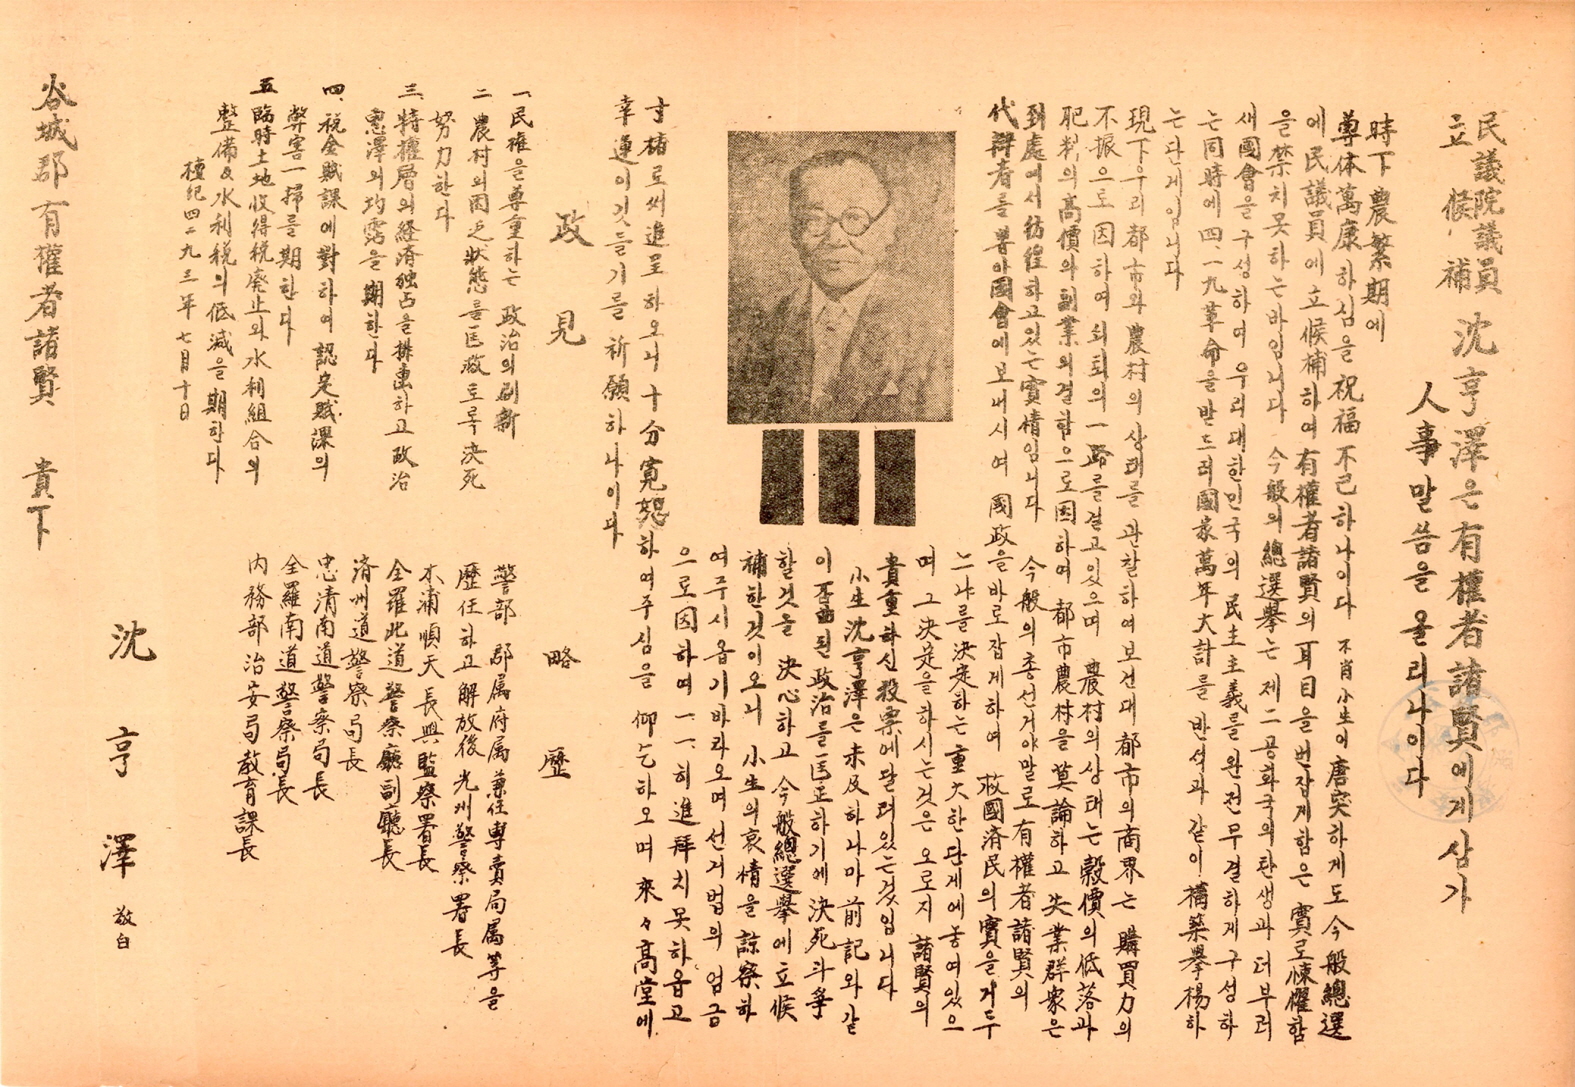 民議院議員
立候補
沈亨澤은有權者諸賢에게삼가
人事말씀을올리나이다
時下農繁期에
尊体萬康하심을祝福不已하나이다 不肖小生이唐突하게도今般總選
에民議員에立候補하여有權者諸賢의耳目을번잡게함은實로悚懼함
을禁치못하는바입니다 今般의總選擧는제二공화국의탄생과더부러
새國會을구성하며우리대한민국의民主主義를완전무결하게구성하
는同時에四一九革命을받드러國家萬年大計를반석과같이構築擧揚하
는단게임니다
現下우리都市와農村의상태를관찰하여보건대都市의商界는購買力의
不振으로因하여퇴퇴의一路를걸고있으며農村의상태는穀價의低落과
肥料의高價와副業의결함으로因하여都市農村을莫論하고失業群衆은
到處에서彷徨하고있는實情임니다 今般의총선거야말로有權者諸賢의
代辯者를뽑아國會에보내시여國政을바로잡게하여 救國済民의實을거두
느냐를決定하는重大한단게에놓여있으
며그決定을하시는것은오로지諸賢의
貴重하신投票에달려있는것입니다
小生沈亨澤은未及하나마前記와같
이歪曲된政治를匡正하기에決死斗爭
할것을決心하고今般總選擧에立候
補한것이오니小生의哀情을諒察하
여주시옵기바라오며선거법의엄금
으로因하여一一히進拜치못하옵고
寸楮로써進呈하오니十分寬恕하여주심을仰乞하오며來々高堂에
幸運이깃들기를祈願하나이다
政見
一、民權을尊重하는政治의刷新
二 農村의困乏狀態를匡救토록決死
努力한다
三 特權層의経済独占을排击하고政治
惠澤의均霑을期한다
四、税金賦課에對하여認定賦課의
弊害一掃를期한다
五 臨時土地收得税廃止와水利組合의
整備及水利税의低減을期한다
檀紀四二九三年七月十日
略歷
警部 郡属府属兼任専賣局属等을
歷任하고解放後光州警察署長
木浦順天長興監察署長
全羅北道警察廳副廳長
済州道警察局長
忠清南道警察局長
全羅南道警察局長
内務部治安局敎育課長
沈亨澤 敬白
谷城郡有權者諸賢 貴下